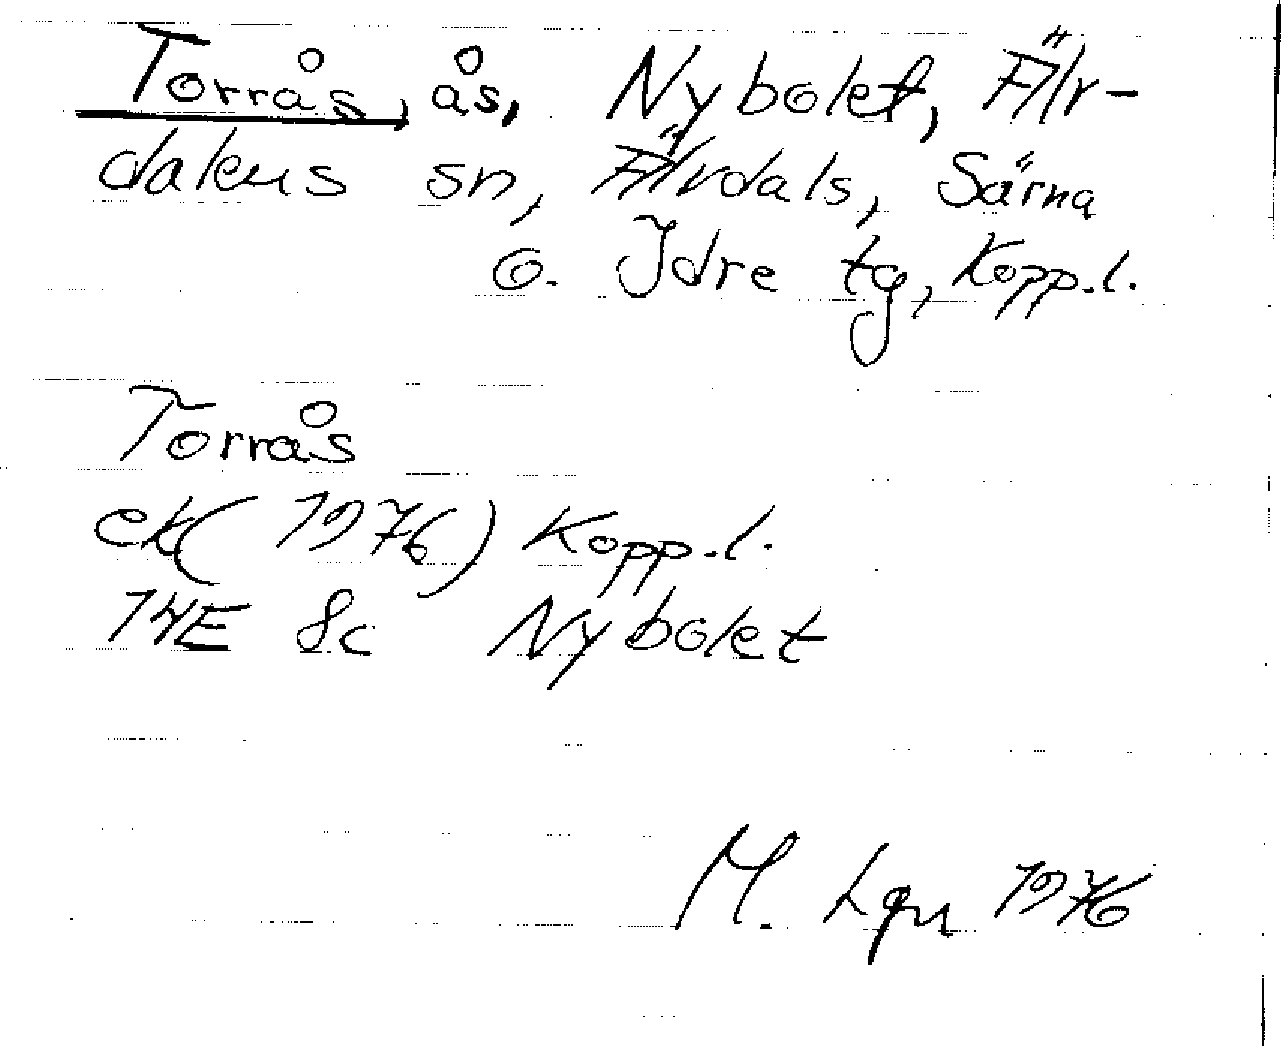 Torrås, ås, Nybolet, Älv-
dalens sn, Älvdals, Särna
o. Idre tg, Kopp.l.
Torrås
ek (1976) Kopp.l.
14E 8c Nybolet
M. Lgn 1976